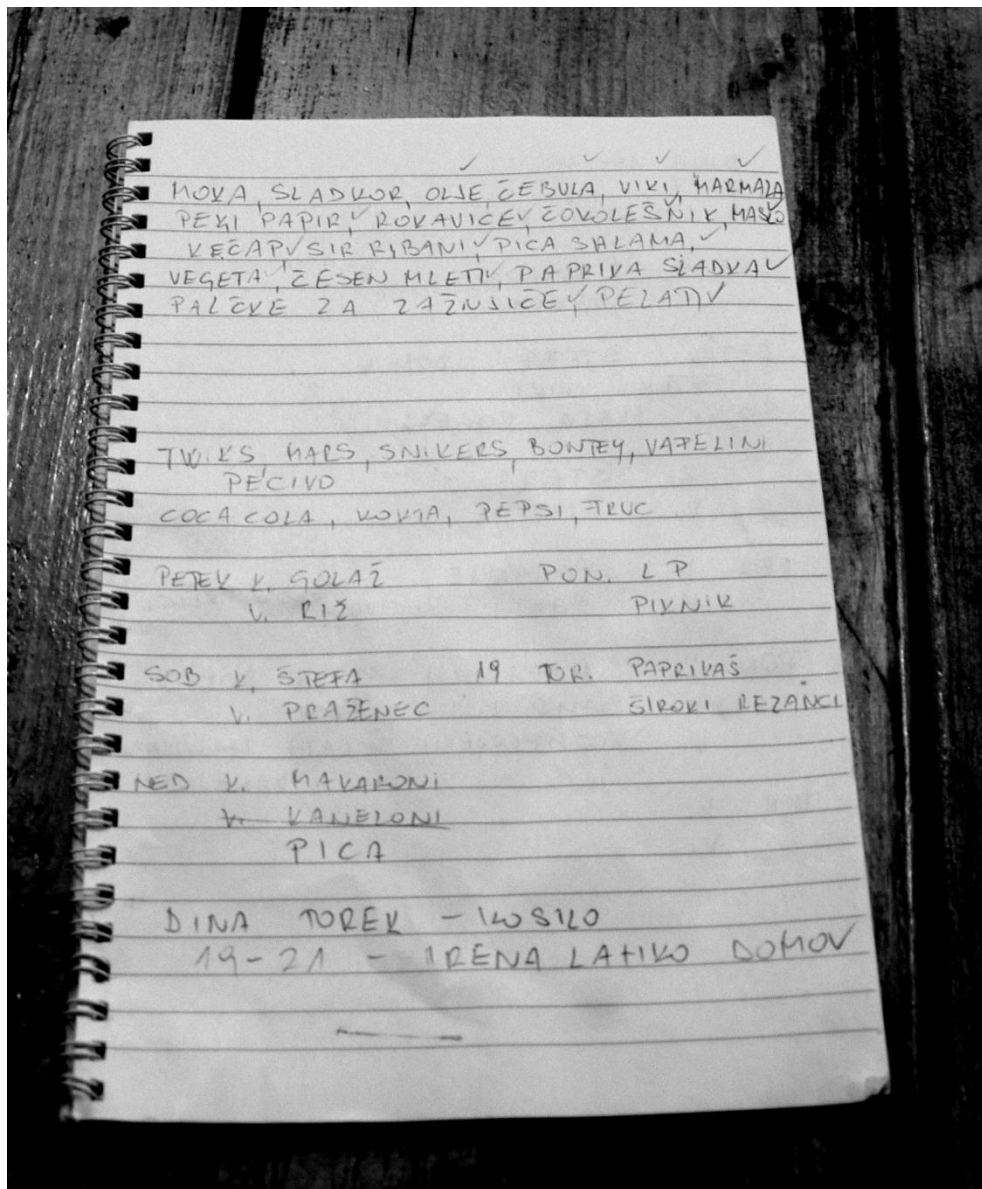 MOKA, SLADKOR, OLJE, ČEBULA, VIKI, MARMALA
PEKI PAPIR, ROKAVICE, ČOKOLEŠNIK, MASLO
KEČAP, SIR RIBANI, PICA SALAMA,
VEGETA, ČESEN MLETI, PAPRIKA SLADKA
PALČKE ZA RAŽNJIČE, PELATI
TWIKS, MARS, SNIKERS, BONTEY, VAFELINI
PECIVO
COCA COLA, KOKTA, PEPSI, FRUC
PETEK K. GOLAŽ PON. L P
V. RIŽ PIKNIK
SOB K. ŠTEFA 19 TOR. PAPRIKAŠ
V. PRAŽENEC ŠIROKI REZANCI
NED K. MAKARONI
V. KANELONI
PICA
DINA TOREK - KOSILO
19-21 - IRENA LAHKO DOMOV